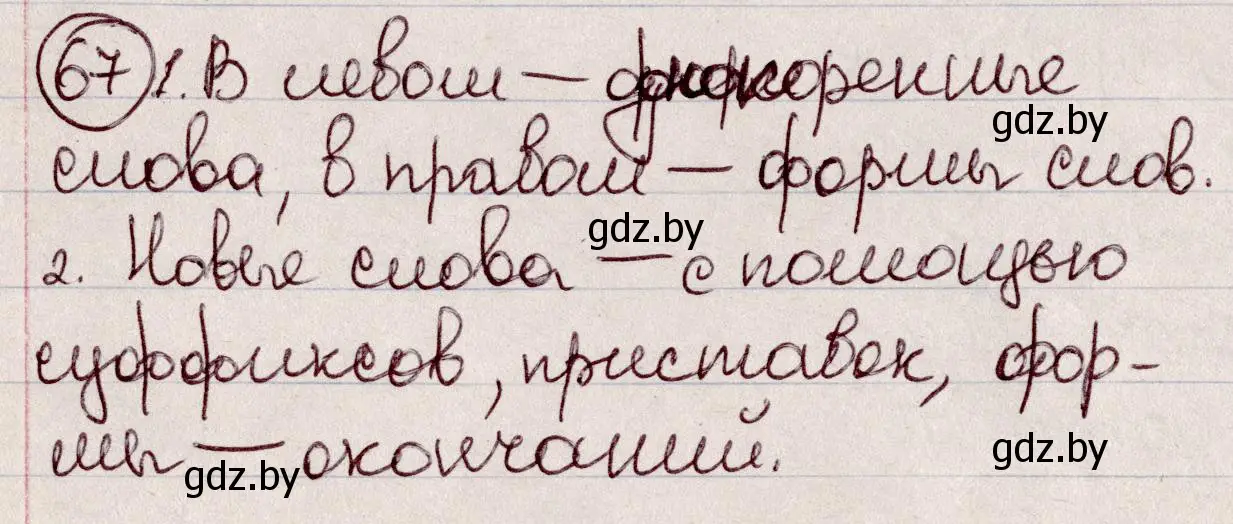 67 1. В левом — однокоренные
gdz.by
слова, в правом — формы слов.
gdz.by
2. Новые слова — с помощью
суффиксов, приставок, фор-
мы — окончаний.
gdz.by
gdz.by